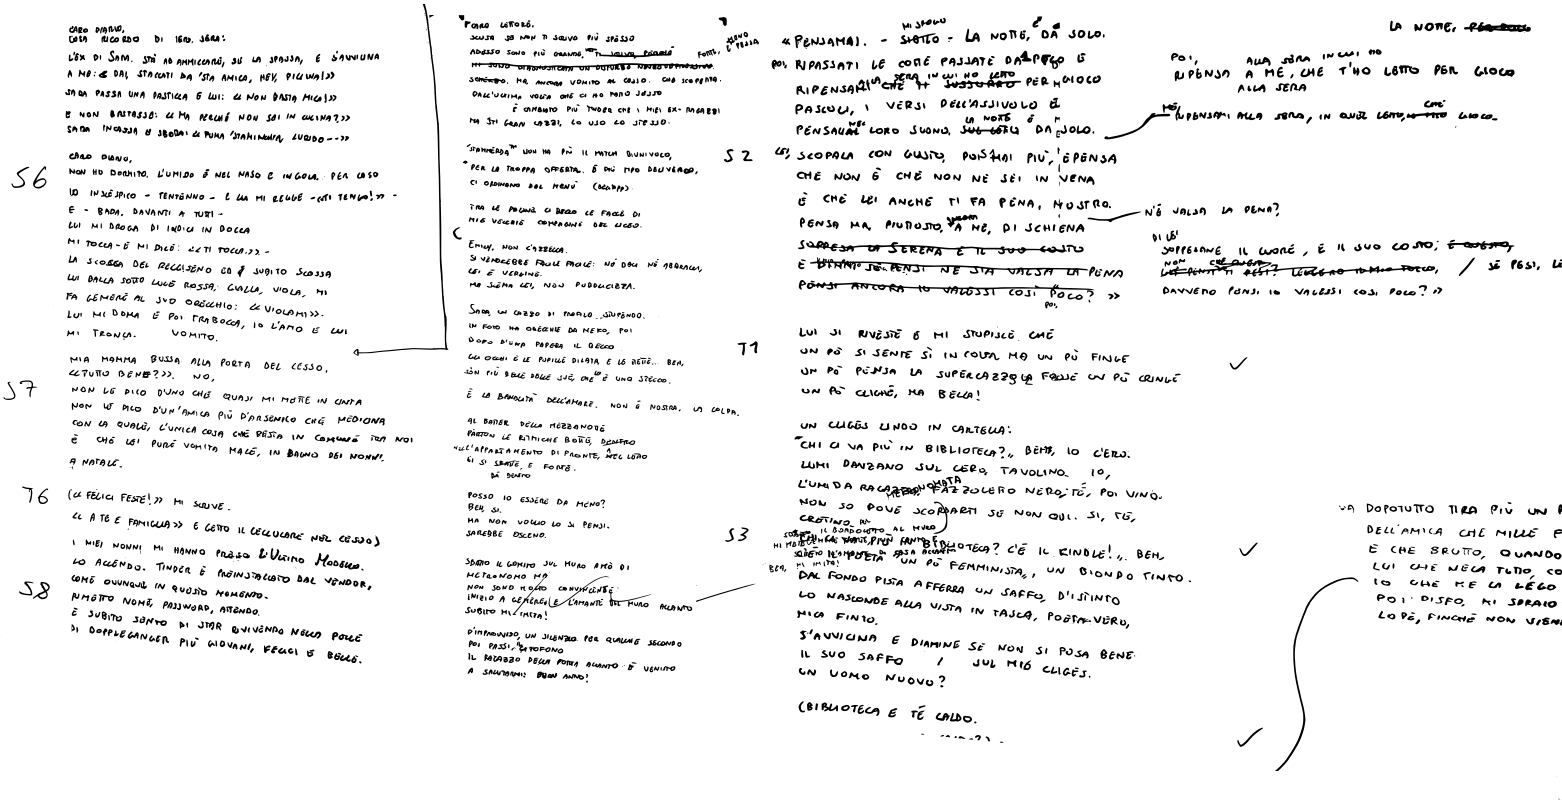 CARO DIARIO,
COSA RICORDO DI IERI SERA:
L'EX DI SAM. STA AD AMMICCARE, SE LA SPASSA, E S'AVVICINA
A ME: « DAI, STACCATI DA 'STA AMICA, HEY, PICCINA!»
SARA PASSA UNA PASTICCA E LUI: « NON BASTA MICA!»
E NON BASTASSE: « MA PERCHÉ NON SEI IN CUCINA?»
SARA INCASSA E SBOTTA: « PURA 'STAMINCHIA, LURIDO --»
S6
CARO DIARIO,
NON HO DORMITO. L'UMIDO È NEL NASO E IN GOLA. PER CASO
IO INCESPICO - TENTENNO - E LUI MI REGGE - «TI TENGO!» -
E - BADA, DAVANTI A TUTTI -
LUI MI DROGA DI INDICI IN BOCCA
MI TOCCA - E MI DICE: «TI TOCCA.» -
LA SCOCCA DEL REGGISENO ED È SUBITO SCOSSA
LUI DALLA SOTTO LUCE ROSSA, GIALLA, VIOLA, MI
FA GEMERE AL SUO ORECCHIO: «VIOLAMI».
LUI MI DOMA E POI TRABOCCA, IO L'AMO E LUI
MI TRONCA. VOMITO.
S7
MIA MAMMA BUSSA ALLA PORTA DEL CESSO,
«TUTTO BENE?». NO,
NON LE DICO D'UNO CHE QUASI MI METTE IN CINTA
NON LE DICO D'UN'AMICA PIÙ D'ARSENICO CHE MEDICINA
CON LA QUALE, L'UNICA COSA CHE RESTA IN COMUNE TRA NOI
È CHE LEI PURE VOMITA MALE, IN BAGNO DEI NONNI.
A NATALE.
T6
(«FELICI FESTE!» MI SCRIVE.
« A TE E FAMIGLIA» E GETTO IL CELLULARE NEL CESSO)
S8
I MIEI NONNI MI HANNO PRESO L'ULTIMO MODELLO.
LO ACCENDO. TINDER È PREINSTALLATO DAL VENDOR,
COME OVUNQUE IN QUESTO MOMENTO.
RIMETTO NOME, PASSWORD, ATTENDO.
E SUBITO SENTO DI STAR RIVIVENDO NELLA PELLE
DI DOPPLEGANGER PIÙ GIOVANI, FELICI E BELLE.
CARO LETTORE,
SCUSA SE NON TI SCRIVO PIÙ SPESSO
ADESSO SONO PIÙ GRANDE,
SCHERZO. MA ANCORA VOMITO AL CESSO. CHE SCOPERTA.
DALL'ULTIMA VOLTA CHE CI HO FATTO SESSO
È CAMBIATO PIÙ TINDER CHE I MIEI EX-RAGAZZI
MA STI GRAN CAZZI, LO USO LO STESSO.
"STAMMERDA" NON HA PIÙ IL MATCH BIUNIVOCO,
PER LA TROPPA OFFERTA. È PIÙ TIPO DELIVEROO,
CI ORDINANO DAL MENÙ
TRA LE PAGINE CI BECCO LE FACCE DI
MIE VECCHIE COMPAGNE DEL LICEO.
EMILY, NON C'AZZECCA.
SI VENDEREBBE FACILE FACILE: NÉ DOCI NÉ ABBAGLI,
LEI È VERGINE.
MA SCEMA LEI, NON PUBBLICIZZA.
SARA, UN CAZZO DI PROFILO STUPENDO.
IN FOTO HA ORECCHIE DA NEKO, POI
DOPO D'UNA PAPERA IL BECCO.
GLI OCCHI E LE PUPILLE DILATA E LE TETTE... BEH,
SON PIÙ BELLE DELLE SUE, CHE È UNO STECCO.
È LA BANALITÀ DELL'AMARE. NON È NOSTRA, LA COLPA.
AL BATTER DELLA MEZZANOTTE
PARTON LE RITMICHE BOTTE, DENTRO
NELL'APPARTAMENTO DI FRONTE, NEL LETTO
CI SI SBATTE, E FORTE.
POSSO IO ESSERE DA MENO?
BEH, SÌ.
MA NON VOGLIO LO SI PENSI.
SAREBBE OSCENO.
SBATTO IL GOMITO SUL MURO A MO' DI
METRONOMO MA
NON SONO MOLTO CONVINCENTE
INIZIO A GEMERE, E L'AMANTE DEL MURO ACCANTO
SUBITO MI IMITA!
D'IMPROVVISO, UN SILENZIO PER QUALCHE SECONDO
POI PASSI, CITOFONO
IL RAGAZZO DELLA PORTA ACCANTO È VENUTO
A SALUTARMI: BUON ANNO!
MI SPOGLIO
«PENSAMI. - SIGLLO - LA NOTTE, DA SOLO.
POI, RIPASSATI LE COME PASSATE DA POCO E
ALLA SERA IN CUI HO LETTO
RIPENSAMI CHE TI SUSSURRO PER GIOCO
PASCOLI, I VERSI DELL'ASSIUOLO E
LA NOTTE E
PENSA NEL LORO SUONO, DA SOLO.
S2
LEI, SCOPALA CON GUSTO, POI SMAI PIÙ, E PENSA
CHE NON È CHE NON NE SEI IN VENA
È CHE LEI ANCHE TI FA PENA, MOSTRO.
PENSA MA, PIUTTOSTO, A ME, DI SCHIENA
SOPPESA LA SERENA E IL SUO COSTO
E DIMMI SE PENSI NE SIA VALSA LA PENA
PENSI ANCORA IO VALESSI COSÌ POCO? »
POI,
T1
LUI SI RIVESTE E MI STUPISCE CHE
UN PÒ SI SENTE SÌ IN COLPA MA UN PÒ FINGE
UN PÒ PENSA LA SUPERCAZZOLA FOSSE UN PÒ CRINGE
UN PÒ CLICHÉ, MA BELLA!
UN CLIGÈS LINDO IN CARTELLA:
"CHI CI VA PIÙ IN BIBLIOTECA?", BEH, IO C'ERO.
LUMI DANZANO SUL CERO, TAVOLINO. IO,
L'UMIDA RAGAZZA, FAZZOLETTO NERO, TÈ, POI VINO.
NON SO DOVE SCOPARTI SE NON QUI. SÌ, TE,
CRETINO.
S3
BIBLIOTECA? C'È IL KINDLE!", BEH,
È IL POETA "UN PÒ FEMMINISTA", UN BIONDO TINTO.
DAL FONDO PISTA AFFERRA UN SAFFO, D'ISTINTO
LO NASCONDE ALLA VISTA IN TASCA, POETA VERO,
MICA FINTO.
S'AVVICINA E DIAMINE SE NON SI POSA BENE
IL SUO SAFFO / SUL MIO CLIGÈS.
UN UOMO NUOVO?
(BIBLIOTECA E TÈ CALDO.
LA NOTTE,
POI, ALLA SERA IN CUI HO
RIPENSA A ME, CHE T'HO LETTO PER GIOCO
ALLA SERA
RIPENSAMI ALLA SERA, IN QUEL LETTO, GIOCO.
N'È VALSA LA PENA?
DI LEI
SOPPESANE IL CUORE, E IL SUO COSTO; E QUESTO,
/ SE PESI,
DAVVERO PENSI IO VALESSI COSÌ POCO? »
VA DOPOTUTTO TIRA PIÙ UN P
DELL'AMICA CHE MILLE F
E CHE BRUTTO, QUANDO
LUI CHE NEGA TUTTO, CO
IO CHE ME LA LEGO
POI: DISFO, MI SDRAIO
LOPE, FINCHÉ NON VIEN